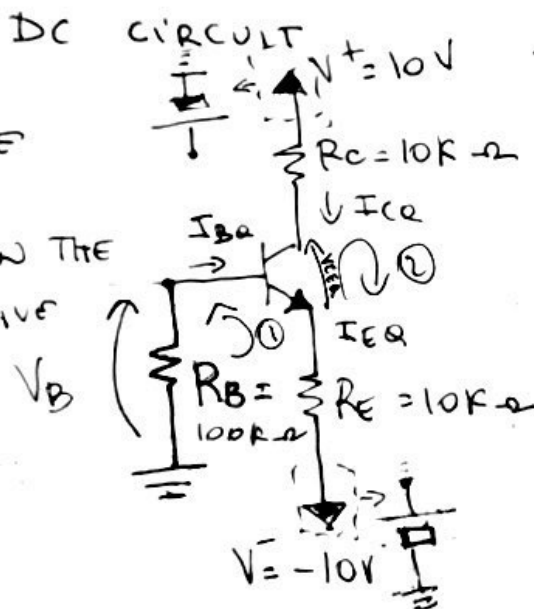 DC CIRCUIT
V+ = 10V
RC = 10K Ω
↓ ICQ
IBQ
N THE
VCEQ
②
IVE
①
IEQ
VB
RB =
100K Ω
RE = 10K Ω
V- = -10V